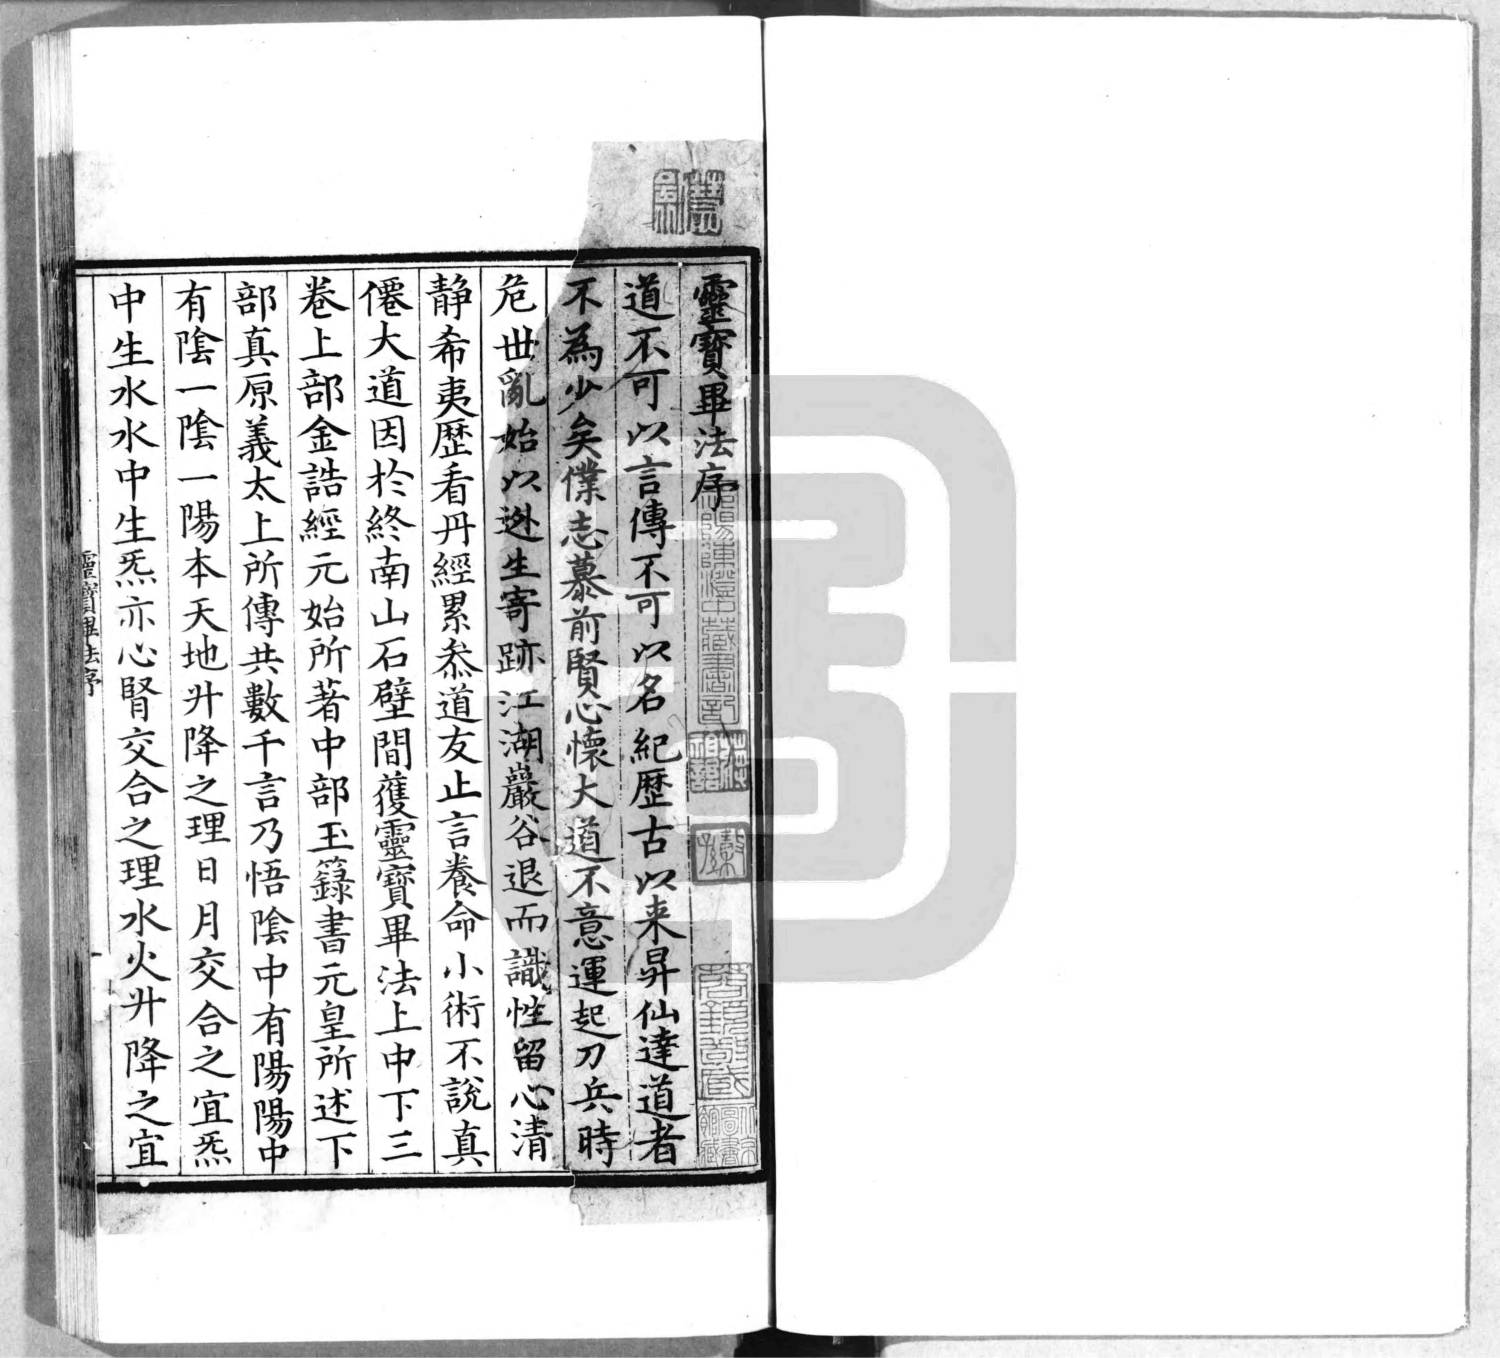 靈寶畢法序
道不可以言傳不可以名紀歷古以来昇仙達道者
不為少矣僕志慕前賢心懷大道不意運起刀兵時
危世亂始以迯生寄跡江湖巖谷退而識性留心清
静希夷歷看丹經累叅道友止言養命小術不說真
僊大道因於終南山石壁間獲靈寶畢法上中下三
卷上部金誥經元始所著中部玉籙書元皇所述下
部真原義太上所傳共數千言乃悟陰中有陽陽中
有陰一陰一陽本天地升降之理日月交合之宜炁
中生水水中生炁亦心腎交合之理水火升降之宜
靈寶畢法序